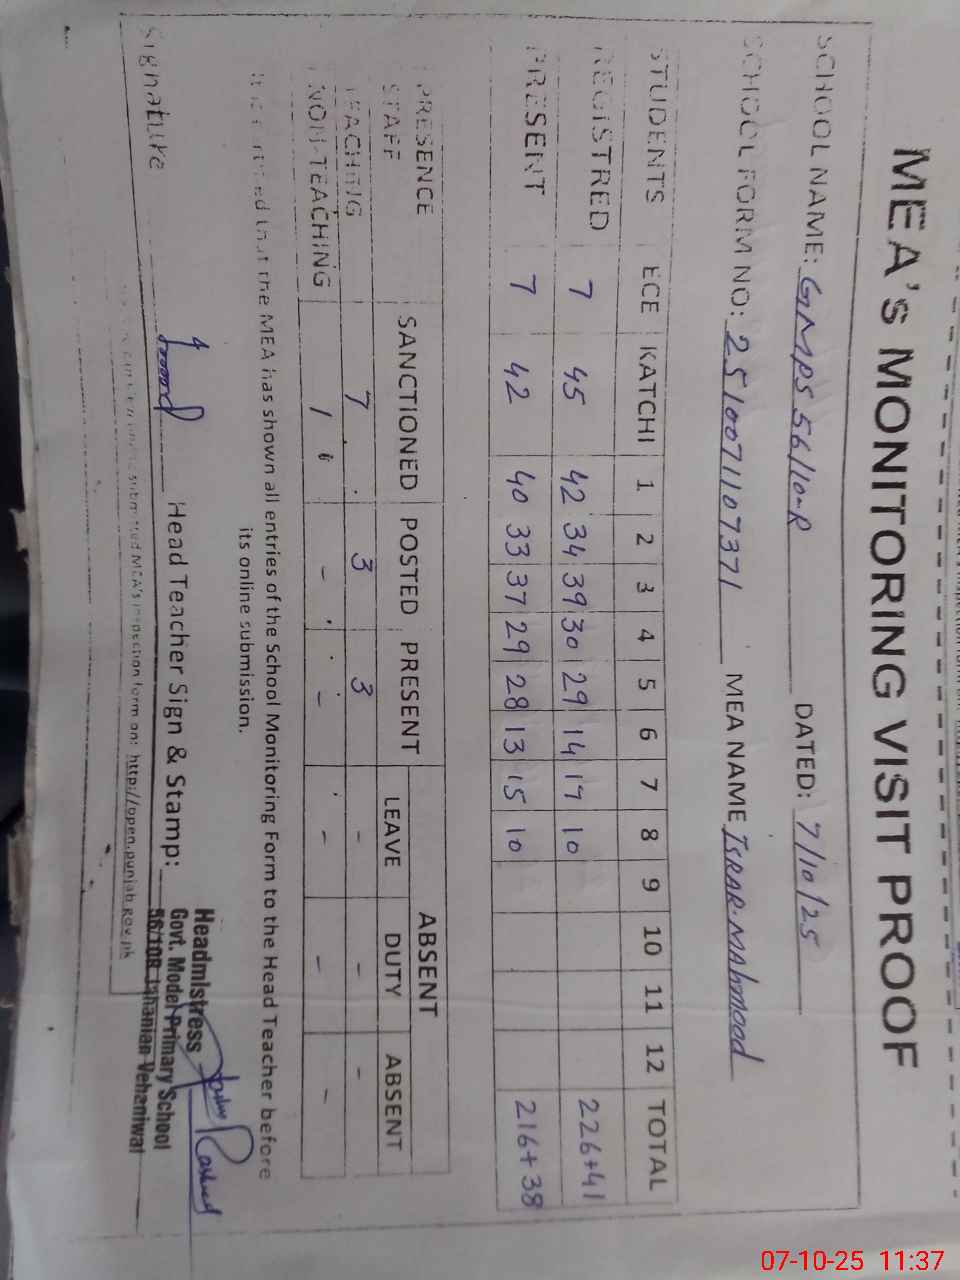 MEA'S MONITORING VISIT PROOF
SCHOOL NAME: GMPS 56/10-R DATED: 7/10/25
SCHOOL FORM NO: 2510071107371 MEA NAME ISRAR.MAHMOOD
STUDENTS ECE KATCHI 1 2 3 4 5 6 7 8 9 10 11 12 TOTAL
REGISTRED 7 45 42 34 39 30 29 14 17 10 226+41
PRESENT 7 42 40 33 37 29 28 13 15 10 216+38
PRESENCE STAFF SANCTIONED POSTED PRESENT ABSENT
LEAVE DUTY ABSENT
TEACHING 7 3 3 - - -
NON-TEACHING 1 - - - - -
that the MEA has shown all entries of the School Monitoring Form to the Head Teacher before
its online submission.
Signature Head Teacher Sign & Stamp:
Headmistress
Govt. Model Primary School
56/10R Jahanian Vehaniwal
submitted MEA's inspection form on: http://open.punjab.gov.pk
07-10-25 11:37